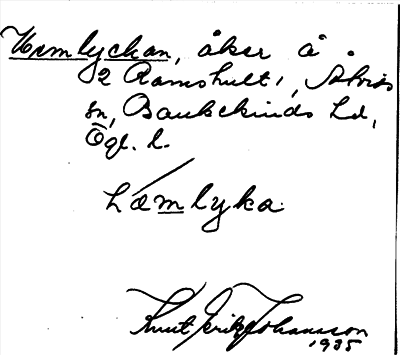 Hemlyckan, åker å
2 Ramshult,
sn, Bankekinds hd,
Ögl. l.
hæmlyka
Knut Erik Johansson
1935